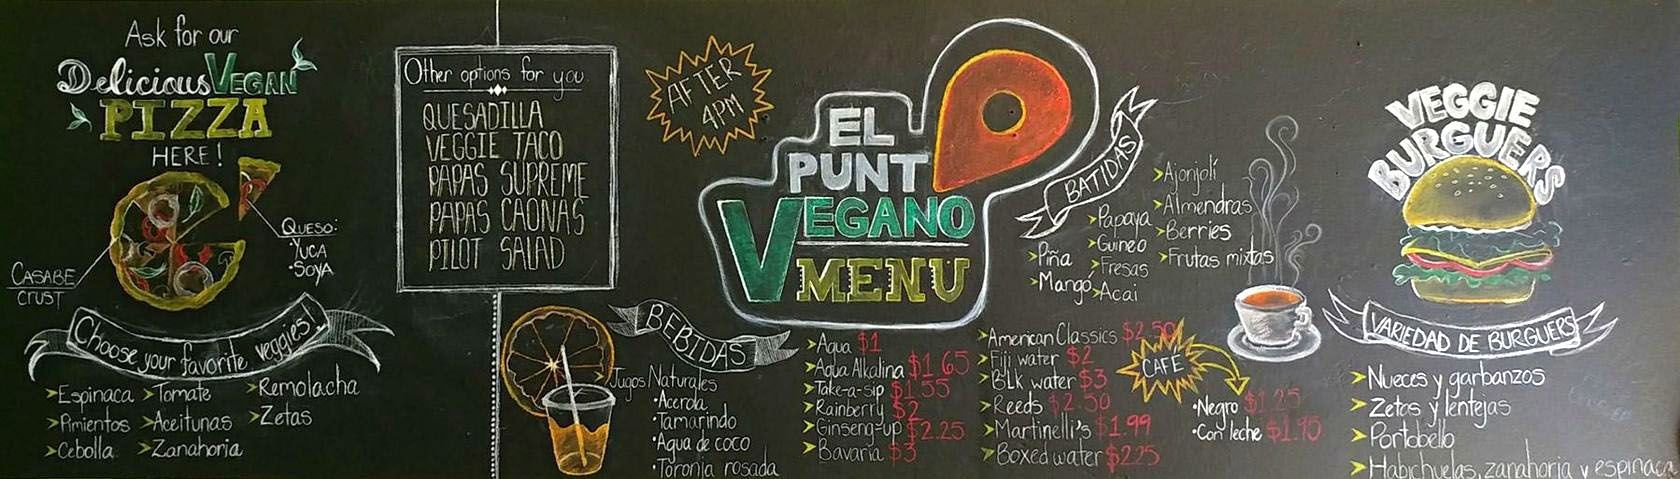 Ask for our
Delicious VEGAN
PIZZA
HERE!
QUESO:
·YUCA
·SOYA
CASABE
CRUST
Choose your favorite veggies!
➤Espinaca ➤Tomate ➤Remolacha
➤Pimientos ➤Aceitunas ➤Zetas
➤Cebolla ➤Zanahoria
Other options for you
QUESADILLA
VEGGIE TACO
PAPAS SUPREME
PAPAS CAONAS
PILOT SALAD
AFTER
4PM
EL
PUNT
VEGANO
MENU
BEBIDAS
Jugos Naturales
·Acerola
·Tamarindo
·Agua de coco
·Toronja rosada
➤Agua $1
➤Agua Alkalina $1.65
➤Take-a-sip $1.55
➤Rainberry $2
➤Ginseng-up $2.25
➤Bavaria $3
➤American Classics $2.50
➤Fiji water $2
➤BLK water $3
➤Reeds $2.50
➤Martinelli's $1.99
➤Boxed water $2.25
BATIDAS
➤Piña
➤Mangó
➤Papaya
➤Guineo
➤Fresas
➤Acai
➤Ajonjolí
➤Almendras
➤Berries
➤Frutas mixtas
CAFÉ
·Negro $1.25
·Con leche $1.90
VEGGIE
BURGUERS
VARIEDAD DE BURGUERS
➤Nueces y garbanzos
➤Zetas y lentejas
➤Portobello
➤Habichuelas, zanahoria y espinaca